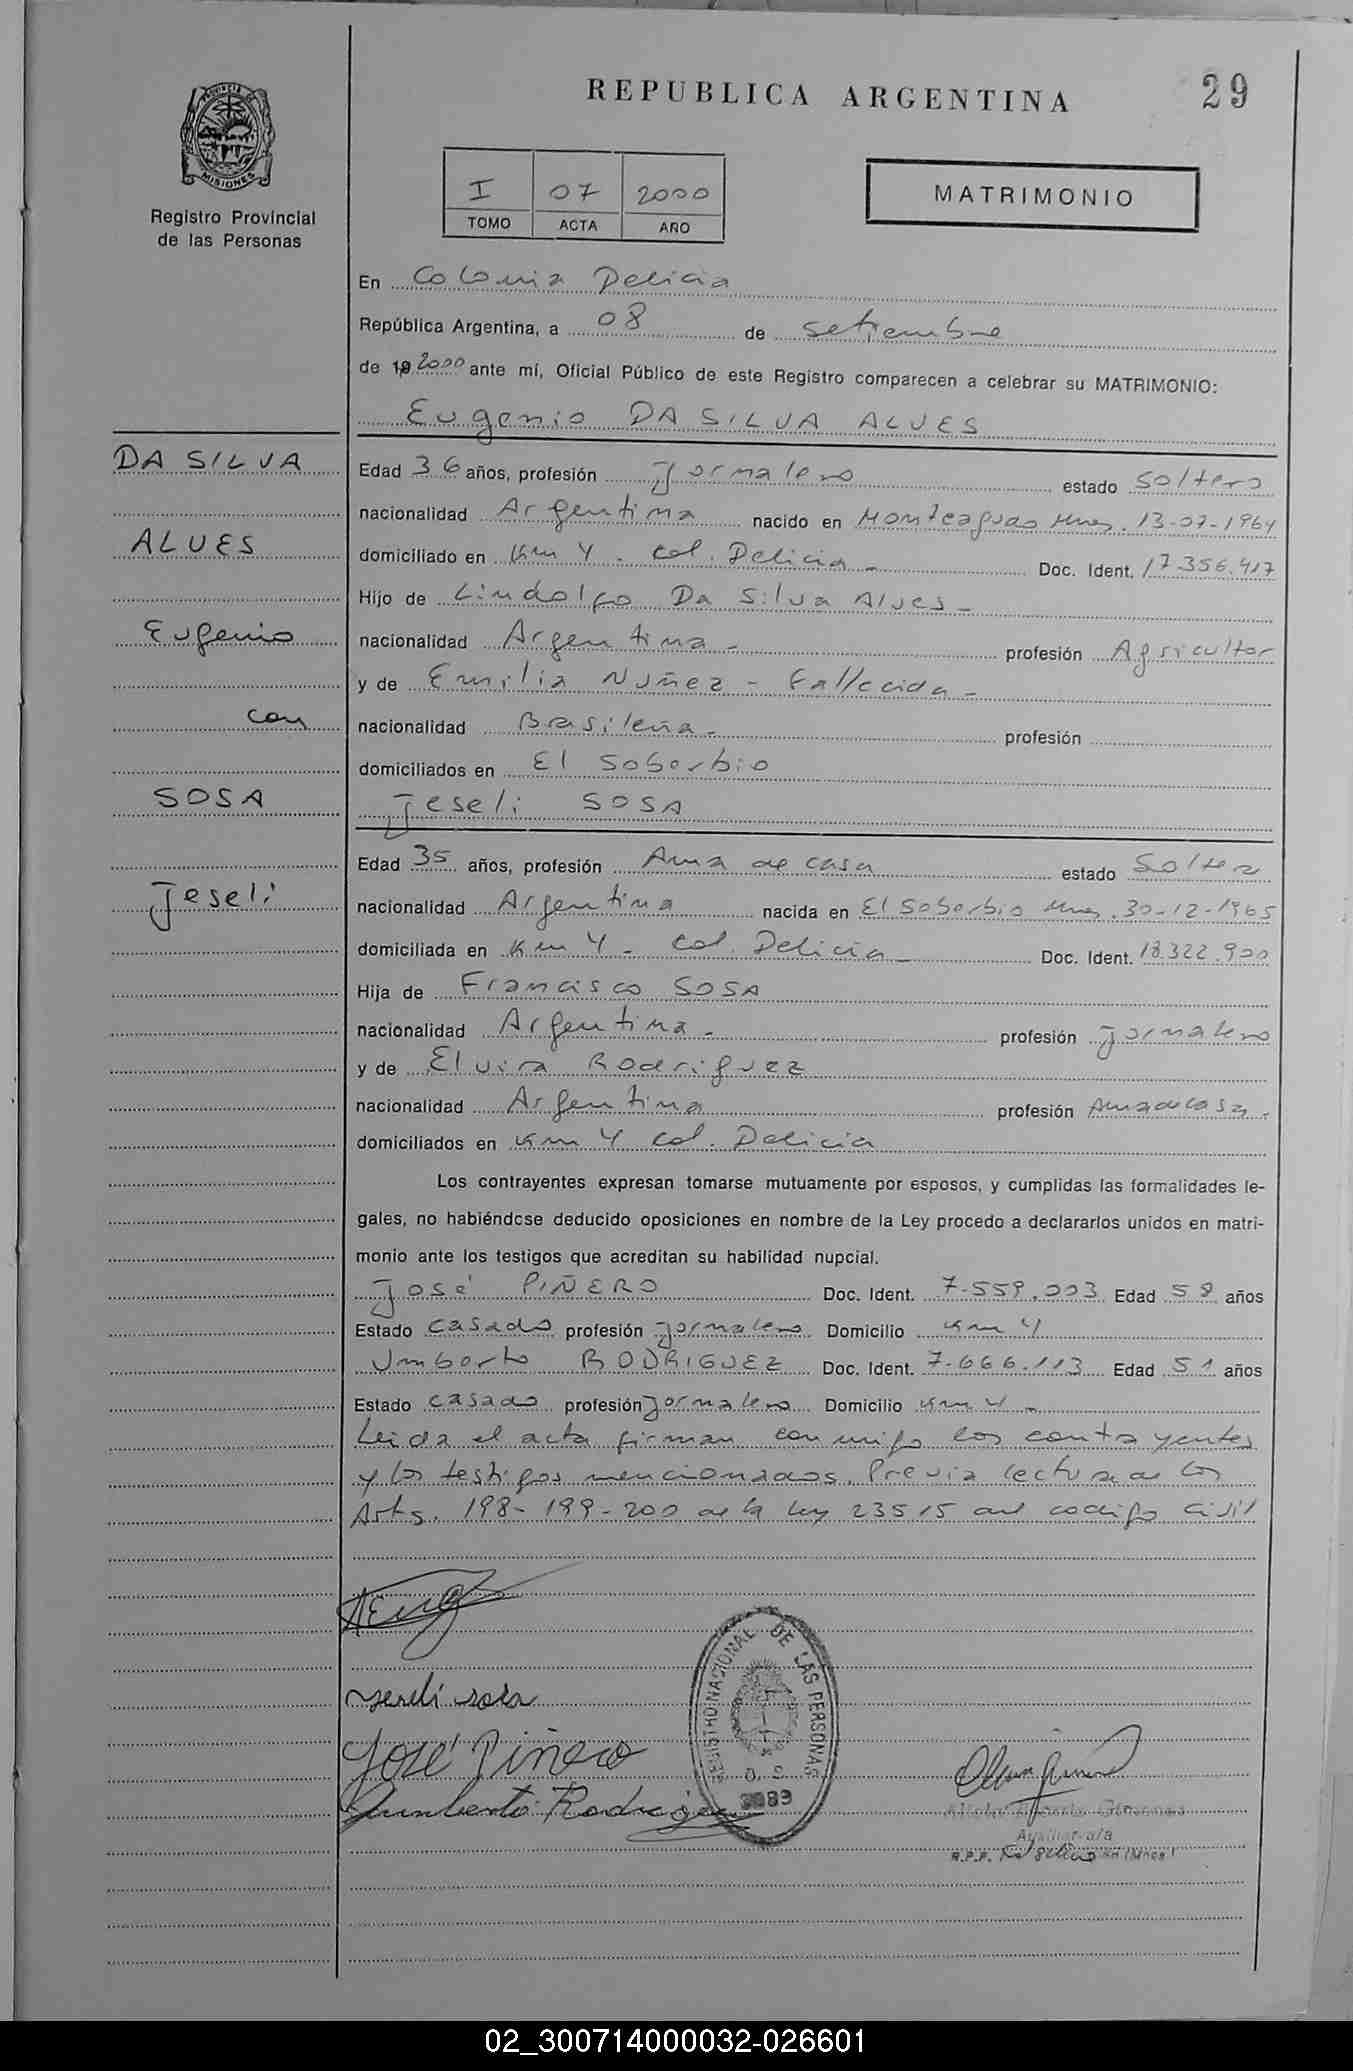 REPUBLICA ARGENTINA
29
PROVINCIA DE
MISIONES
Registro Provincial
de las Personas
I 07 2000
TOMO ACTA AÑO
MATRIMONIO
En Colonia Delicia
República Argentina, a 08 de setiembre
de 19 2000 ante mí, Oficial Público de este Registro comparecen a celebrar su MATRIMONIO:
Eugenio DA SILVA ALVES
DA SILVA
ALVES
Eugenio
con
SOSA
Jeseli
Edad 36 años, profesión Jornalero estado Soltero
nacionalidad Argentina nacido en Monteagudo Mnes. 13-07-1964
domiciliado en Km 4 - Col. Delicia - Doc. Ident. 17.356.417
Hijo de Lindolfo Da Silva Alves -
nacionalidad Argentina - profesión Agricultor
y de Emilia Nuñez - Fallecida -
nacionalidad Brasileña - profesión
domiciliados en El Soberbio
Jeseli SOSA
Edad 35 años, profesión Ama de casa estado Soltera
nacionalidad Argentina nacida en El Soberbio Mnes. 30-12-1965
domiciliada en Km 4 - Col. Delicia - Doc. Ident. 18.322.900
Hija de Francisco SOSA
nacionalidad Argentina - profesión Jornalero
y de Elvira Rodriguez
nacionalidad Argentina profesión Ama de casa.
domiciliados en Km 4 Col. Delicia
Los contrayentes expresan tomarse mutuamente por esposos, y cumplidas las formalidades le-
gales, no habiéndose deducido oposiciones en nombre de la Ley procedo a declararlos unidos en matri-
monio ante los testigos que acreditan su habilidad nupcial.
José PIÑERO Doc. Ident. 7.559.003 Edad 58 años
Estado casado profesión Jornalero Domicilio Km 4
Umberto RODRIGUEZ Doc. Ident. 7.666.113 Edad 51 años
Estado casado profesión Jornalero Domicilio Km 4 -
Leida el acta firman conmigo los contrayentes
y los testigos mencionados. Previa lectura de los
Arts. 198-199-200 de la ley 23515 del codigo Civil
Jeseli sosa
José Piñero
Humberto Rodriguez
REGISTRO NACIONAL DE LAS PERSONAS
Auxiliar a/a
R.P.P.
02_300714000032-026601